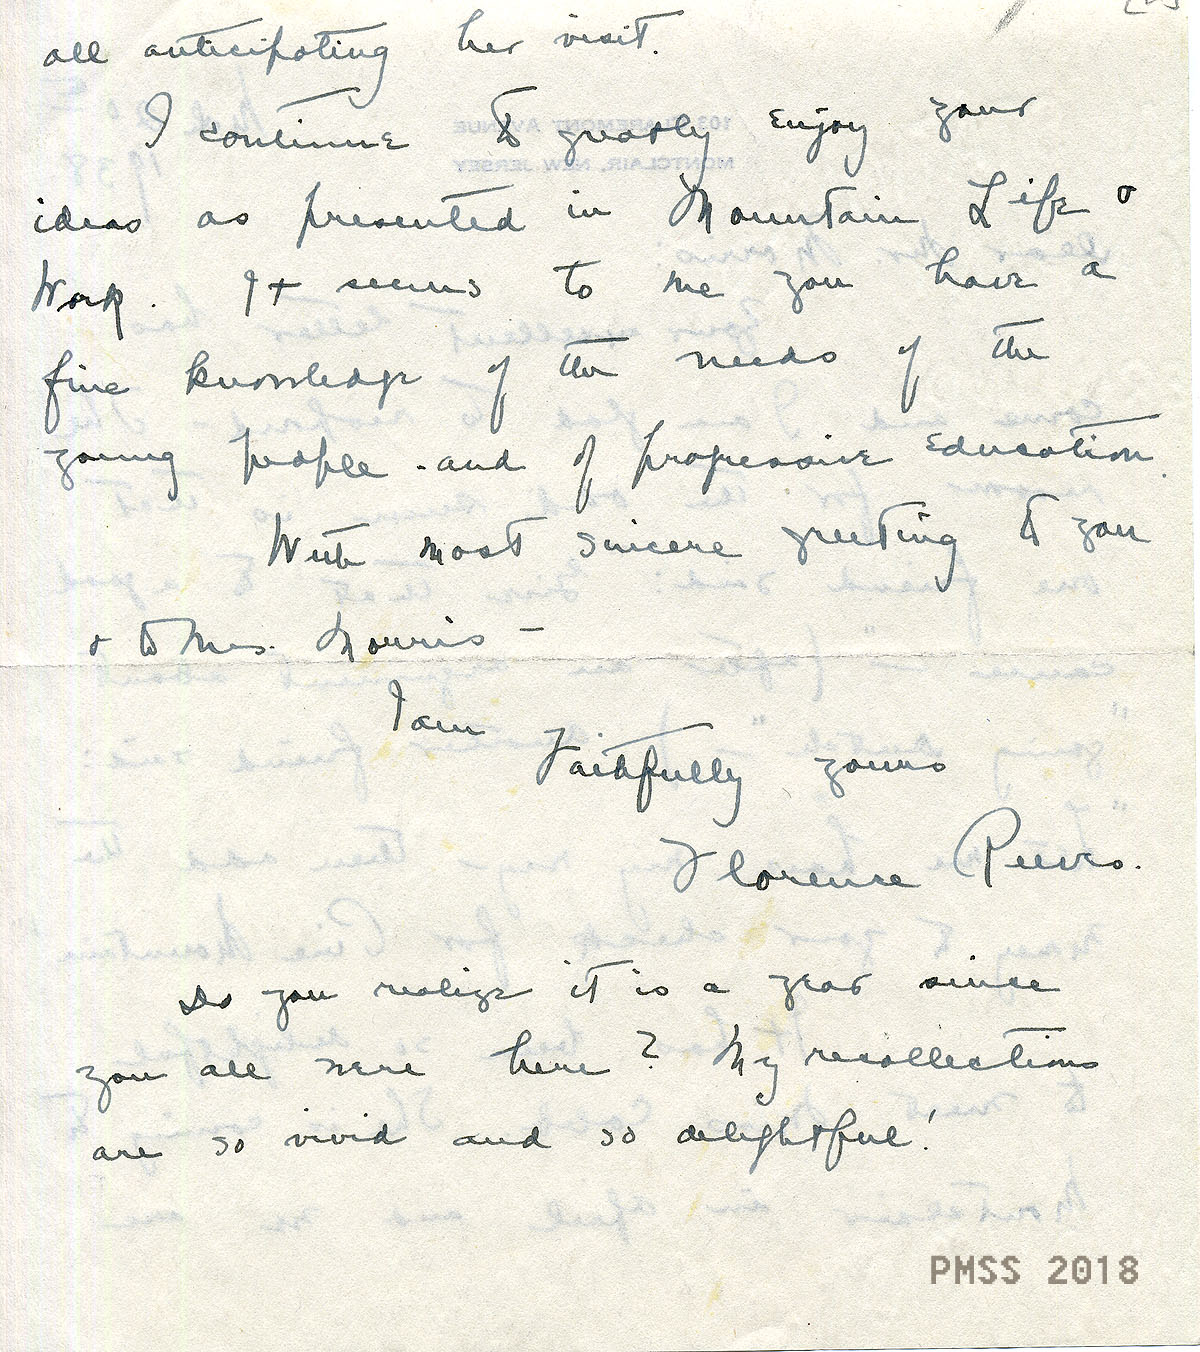 all anticipating her visit.
I continue to greatly enjoy your
ideas as presented in Mountain Life &
Work. It seems to me you have a
fine knowledge of the needs of the
young people - and of progressive Education.
With most sincere greeting to you
& to Mrs. Morris -
I am
Faithfully yours
Florence Reeves.
Do you realize it is a year since
you all were here? My recollections
are so vivid and so delightful!
PMSS 2018